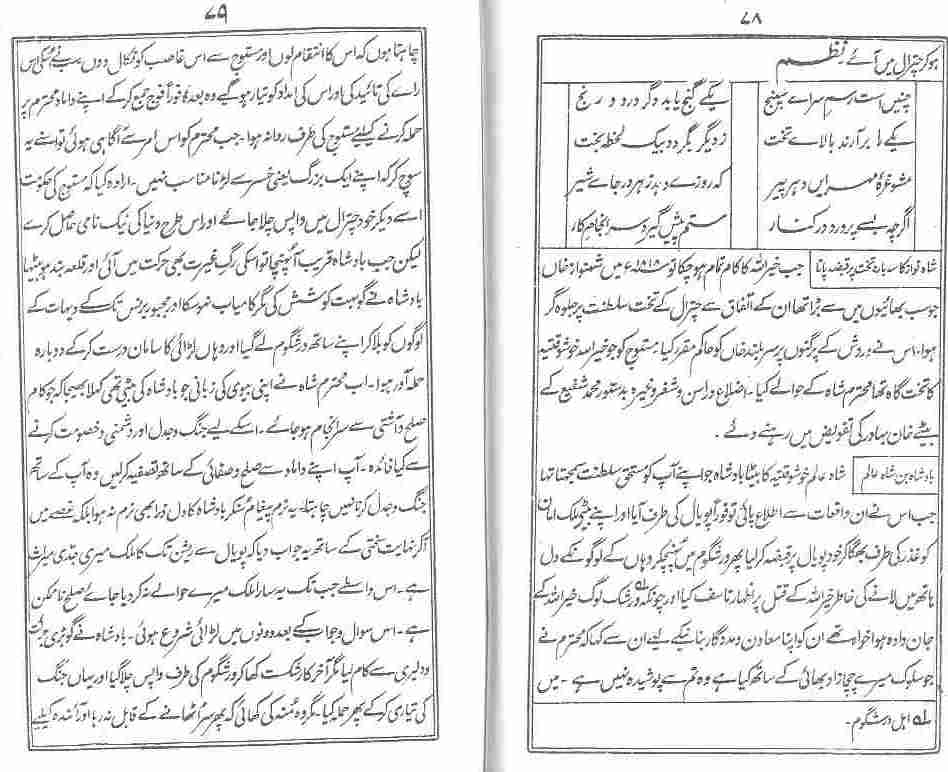 ۷۸
ہوکر چترال میں آئے نظم
چنیں است رسم سراے سپنج یکے گنج یابد دگر درد و رنج
یکے را برآرند بالاے تخت ز دیگر بگردد بیک لحظہ بخت
مشو غرّہ مہر ایں دہر پیر کہ روزے دہد زہر در جاے شیر
اگرچہ بسے پرورد در کنار ستم پیش گیرد سرانجام کار
شاہ نواز کا سہ بارہ تخت پر قبضہ پانا جب خیراللہ کا کام تمام ہو چکا تو میں شہنواز خاں
جو سب بھائیوں میں سے بڑا تھا ان کے اتفاق سے چترال کے تخت سلطنت پر جلوہ گر
ہوا۔ اس نے ورش کے پرگنوں پر سربلند خاں کو حاکم مقرر کیا مستوج کو جو خیراللہ خوشوقتیہ
کا تخت گاہ تھا محترم شاہ کے حوالے کیا۔ اضلاع دراسن و شغر وغیرہ بدستور محمد شفیع کے
بیٹے خان بہادر کی تفویض میں رہنے دئے ۔
بادشاہ بن شاہ عالم شاہ عالم خوشوقتیہ کا بیٹا بادشاہ جو اپنے آپ کو مستحق سلطنت سمجھتا تھا
جب اس نے ان واقعات سے اطلاع پائی تو فوراً پویال کی طرف آیا اور اپنے ملک امان
کو غذر کی طرف بھگا کر خود پویال پر قبضہ کر لیا پھر ورشگوم میں پہنچکر وہاں کے لوگوں کے دل
ہاتھ میں لانے کی خاطر خیراللہ کے قتل پر اظہار تاسف کیا اور چونکہ ورشک لوگ خیراللہ کے
جان دادہ ہوا خواہ تھے ان کو اپنا معاون و مددگار بنانے کے لیے ان سے کہا کہ محترم نے
جو سلوک میرے چچا زاد بھائی کے ساتھ کیا ہے وہ تم سے پوشیدہ نہیں ہے ۔ میں
لہ اہل ورشگوم ۔
۷۹
چاہتا ہوں کہ اس کا انتقام لوں اور مستوج سے اس غاصب کو نکال دوں سب نے اسکی اس
راے کی تائید کی اور اس کی امداد کو تیار ہو گئے وہ بعد کا فوراً فوج جمع کر کے اپنے داماد محترم پر
حملہ کرنے کیلئے مستوج کی طرف روانہ ہوا۔ جب محترم کو اس امر سے آگاہی ہوئی تو اسنے یہ
سوچ کر کہ اپنے ایک بزرگ یعنی خسر سے لڑنا مناسب نہیں۔ ارادہ کیا کہ مستوج کی حکومت
اسے دیکر خود چترال میں واپس چلا جائے اور اس طرح دنیا کی نیک نامی حاصل کرے
لیکن جب بادشاہ قریب آ پہنچا تو اسکی رگ غیرت بھی حرکت میں آئی اور قلعہ بند ہو بیٹھا
بادشاہ نے گو بہت کوشش کی مگر کامیاب نہو سکا اور مجبور ہو کر تک کے دیہات کے
لوگوں کو ہلا کر اپنے ساتھ ورشگوم لے گیا اور وہاں لڑائی کا سامان درست کر کے دوبارہ
حملہ آور ہوا۔ اب محترم شاہ نے اپنی بیوی کی زبانی جو بادشاہ کی بیٹی تھی کہلا بھیجا کہ جو کام
صلح و آشتی سے سرانجام ہو جائے۔ اسکے لیے جنگ و جدل اور دشمنی و خصومت کرنے
سے کیا فائدہ۔ آپ اپنے داماد سے صلح و صفائی کے ساتھ تصفیہ کر لیں وہ آپ کے ساتھ
جنگ و جدل کرنا نہیں چاہتا۔ یہ نرم پیغام سنکر بادشاہ کا دل ذرا بھی نرم نہ ہوا بلکہ غصے میں
آ کر نہایت سختی کے ساتھ یہ جواب دیا کہ پویال سے رشن تک کا ملک میری جدی میراث
ہے۔ اس واسطے جب تک یہ سارا ملک میرے حوالے نہ کر دیا جاے صلح ناممکن
ہے۔ اس سوال و جواب کے بعد دونوں میں لڑائی شروع ہوئی۔ بادشاہ نے گو بڑی جرأت
و دلیری سے کام لیا مگر آخر کار شکست کھا کر ورشگوم کی طرف واپس چلا گیا اور یہاں جنگ
کی تیاری کر کے پھر حملہ کیا۔ مگر وہ منہ کی کھائی کہ پھر سر اٹھانے کے قابل نہ رہا اور آئندہ کیلئے